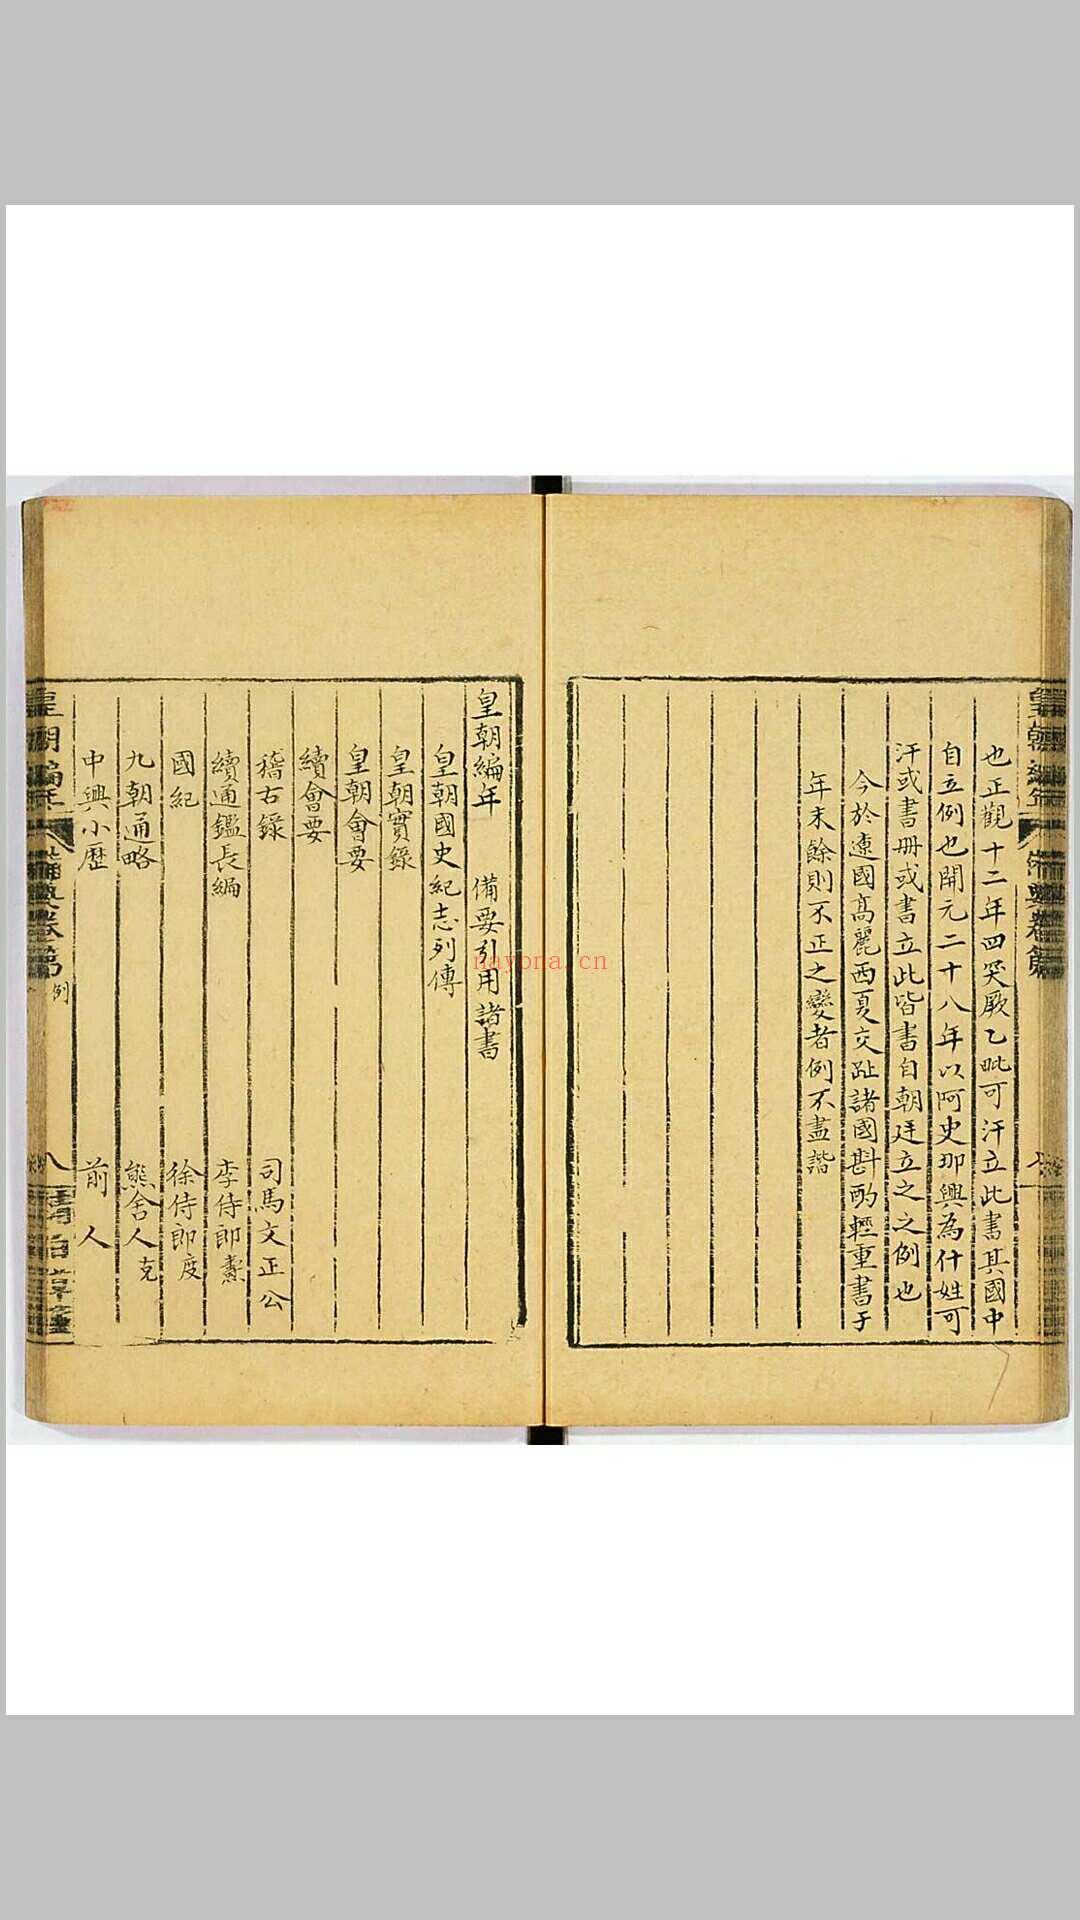 也正觀十二年四突厥乙毗可汗立此書其國中
自立例也開元二十八年以阿史那興為什姓可
汗或書冊或書立此皆書自朝廷立之之例也
今於遼國高麗西夏交趾諸國斟酌輕重書于
年末餘則不正之變者例不盡諧
皇朝編年　備要引用諸書
皇朝國史紀志列傳
皇朝實錄
皇朝會要
續會要
稽古錄　司馬文正公
續通鑑長編　李侍郎燾
國紀　徐侍郎度
九朝通略　熊舍人克
中興小歷　前人
皇朝編年
例
八
nayona.cn